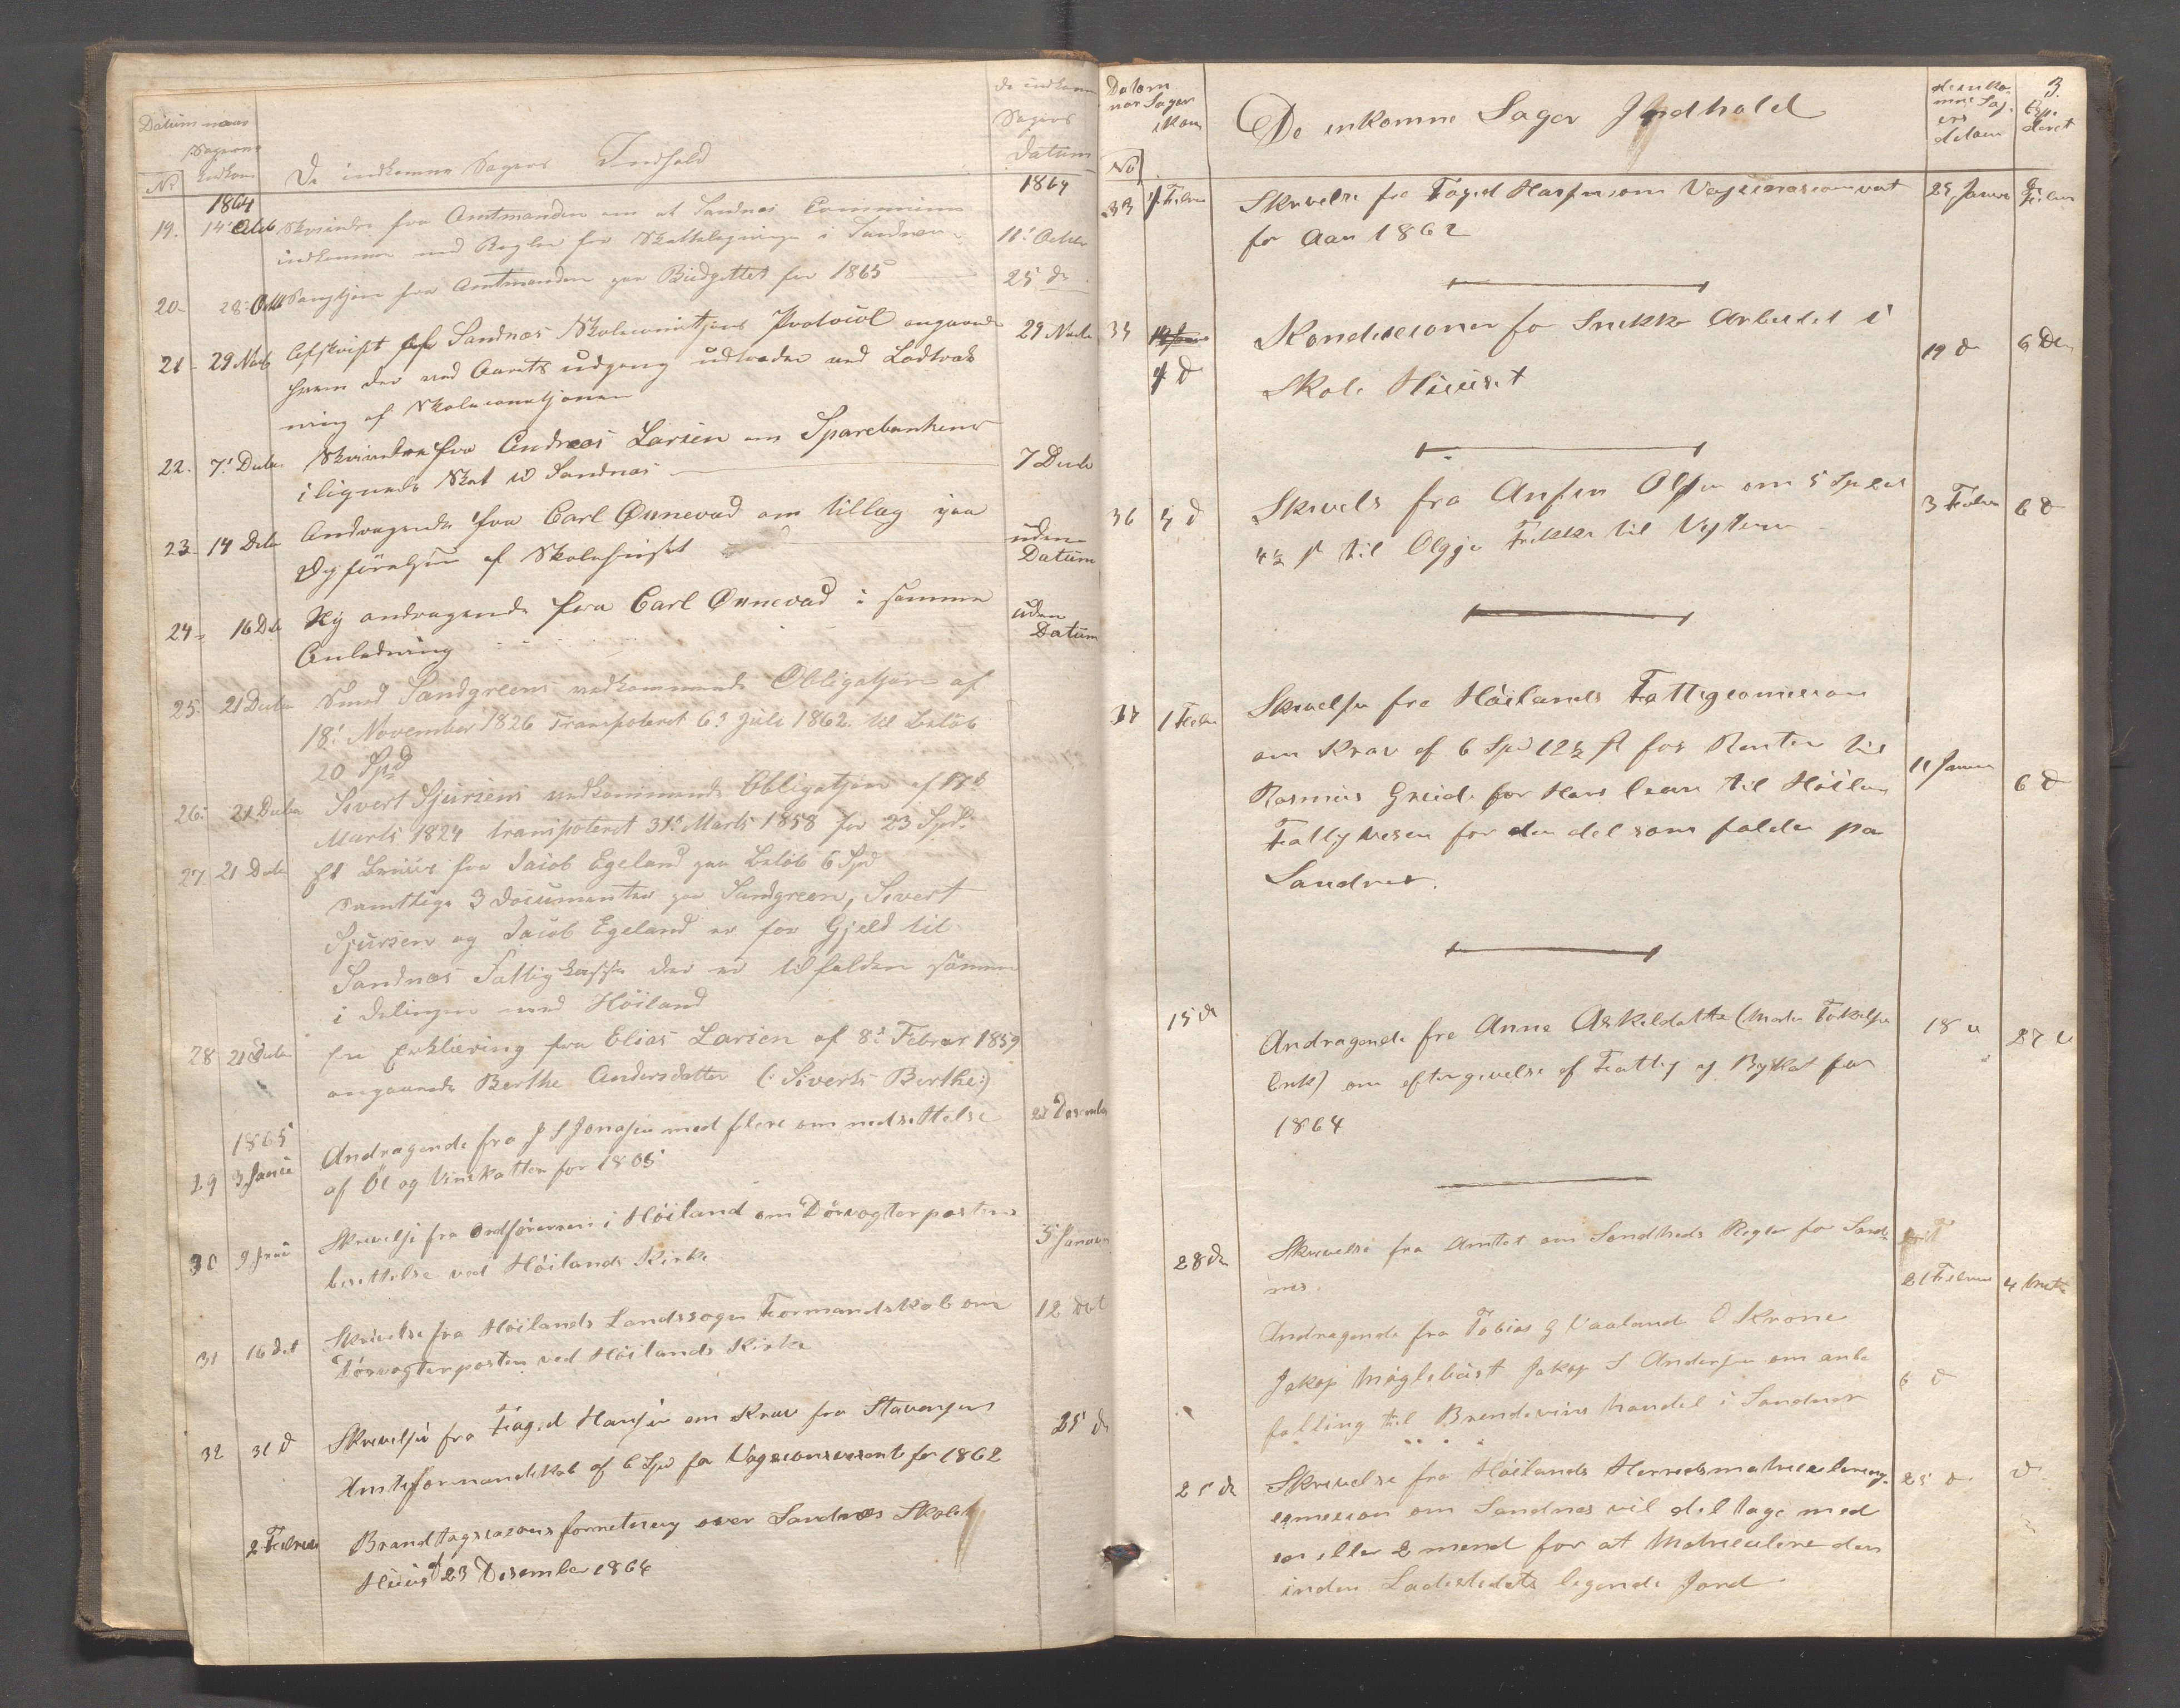 Datum naar
Sagerne
Indkom
No
De indkomne Sagers Indhold
De indkomne
Sagers
Datum
1864
1864
19. 14 Octb Skrivelse fra Amtmanden om at Sandnæs Commune
indkommer med Regler for Skattelegninge i Sandnæs 11' Octbr
20. 28 Octb fra Amtmanden paa Büdgettet for 1865 25 de
21 29 Novb Afskrift af Sandnæs Skolecomitjons Protocol angaaende 29 Novbr
hvem der ved Aarets üdgang üdtræder ved Lodtræk
ning af Skolecomitjonen
22. 7' Decbr. Skrivelse fra Andreas Larsen om Sparebankens
ilignede Skat til Sandnæs 7 Decb
23 14 Decbr Andragende fra Carl Ønnevad om tillæg paa
af Skolehuset
uden
Datüm
24 16 Decb Ny andragende fra Carl Ønnevad i samme
Anledning
uden
Datüm
25. 21 Decbr Smed Sandgreens vedkommende Obligatjon af
18' November 1826 Transpoteret 6' Juli 1862 til Beløb
20 Spd
26. 21 Decbr Sivert Sjursens vedkommende Obligatjon af
Marts 1824 transpoteret 31' Marts 1858 for 23 Spd
27 21 Decbr Et Beviis fra Jacob Egeland paa Beløb 6 Spd
Samtlige 3 Documenter paa Sandgreen, Sivert
Sjursen og Jacob Egeland er for Gjeld til
Sandnæs Fattigkasse der er tilfalden samme
i Delingen med Höiland
28 21 Decbr En Erklæring fra Elias Larsen af 8' Februar 1859
angaaende Berthe Andersdatter (: Siverts Berthe:)
1865
29 3 Janü Andragende fra J S Jonasen med flere om nedsættelse
af Öl og Vinskatten for 1865
30 9 Janü Skrivelse fra Ordföreren i Höiland om Dörvogterposten 5 Januar
besettelse ved Höilands Kirke
31 16 det Skrivelse fra Höilands Landssogn Formandskab om 12 det
Dörvogterposten ved Höilands Kirke
32 31 d Skrivelse fra Foged Hansen om Krav fra Stavanger 25 d
Amtsformandskab af 6 Spd for 1862
2 Februar Brandtagscasions forretning over Sandnæs Skole
Hüüs 23 Desember 1864
Datom
nar Sager
ikom
No
De inkomne Sager Indhold
de inko
mne Sag
ers
datom
3.
Exp.
deret
33 1 Febru Skrivelse fra Foged Hansen om 25 Janua
for Aar 1862
34 4 d Kondisioner for Snikker Arbeidet i
Skole Hüüset 19 d 6 D
36 4 d Skrivels fra Ansen Olsen om 5 Spd
til 3 Febru 6 d
37 1 Febr Skrivelse fra Höilands Fattigcomision
om Krav af 6 Spd 12½ fl for Renter til
Rasmus Greide for Hans lean til Höilan 11 Janua
Fattigvesen for den del som falder pa 6 d
Sandnes.
15 d Andragende fra Anne Askeldatter 18 d 27 d
Enke) om eftergivelse af Fattig og Byskat for
1864
28 d Skrivelse fra Amtet om Sondheds Regler for Sand
nes. 21 Febru 4 Mrts
Andragende fra Tobias G Vaaland O Krone
Jakop Möglebüst Jakop S Andersen om anbe
falling til Brendevins handel i Sandnes 6 d
25 d Skrivelse fra Höilands Herredsmatriculerings 25 d d
comision om Sandnes vil deltage med
en eller 2 mend for at Matriculere den
inden Ladestedets legende Jord